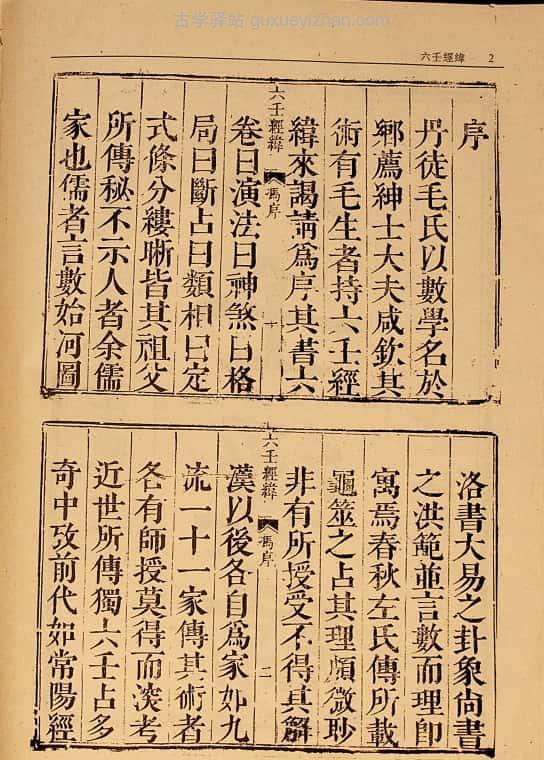 古学驿站 guxueyizhan.com
六壬經緯 2
序
丹徒毛氏以數學名於
鄉薦紳士大夫咸欽其
術有毛生者持六壬經
緯來謁請爲序其書六
六壬經緯 馮序 一
卷曰演法曰神煞曰格
局曰斷占曰類相曰定
式條分縷晰皆其祖父
所傳秘不示人者余儒
家也儒者言數始河圖
洛書大易之卦象尙書
之洪範並言數而理即
寓焉春秋左氏傳所載
龜筮之占其理頗微眇
非有所授受不得其解
六壬經緯 馮序 二
漢以後各自爲家如九
流一十一家傳其術者
各有師授莫得而淡考
近世所傳獨六壬占多
奇中攷前代如常陽經